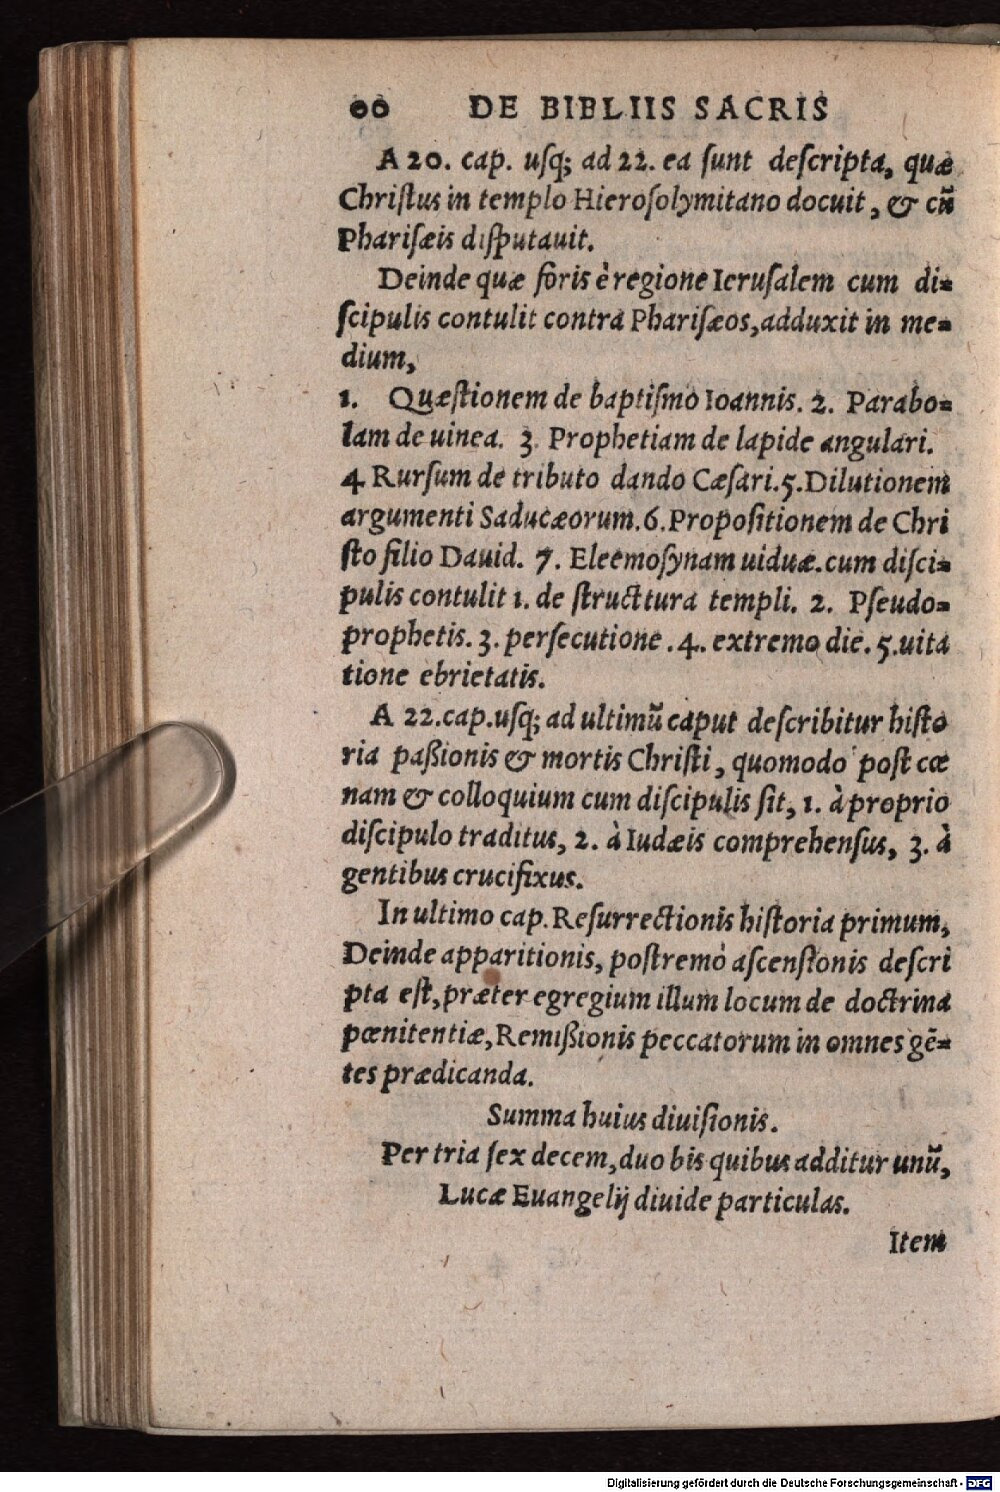 60 DE BIBLIIS SACRIS
A 20. cap. uſq; ad 22. ea ſunt deſcripta, quæ
Chriſtus in templo Hieroſolymitano docuit, & cũ
Phariſæis diſputauit.
Deinde quæ foris è regione Ieruſalem cum di=
ſcipulis contulit contra Phariſæos, adduxit in me=
dium,
1. Quæſtionem de baptiſmo Ioannis. 2. Parabo=
lam de uinea. 3 Prophetiam de lapide angulari.
4 Rurſum de tributo dando Cæſari. 5. Dilutionem
argumenti Saducæorum. 6. Propoſitionem de Chri
ſto filio Dauid. 7. Eleemoſynam uiduæ. cum diſci=
pulis contulit 1. de ſtructtura templi. 2. Pſeudo=
prophetis. 3. perſecutione. 4. extremo die. 5. uita
tione ebrietatis.
A 22. cap. uſq; ad ultimũ caput deſcribitur hiſto
ria paßionis & mortis Chriſti, quomodo poſt cœ
nam & colloquium cum diſcipulis ſit, 1. à proprio
diſcipulo traditus, 2. à Iudæis comprehenſus, 3. à
gentibus crucifixus.
In ultimo cap. Reſurrectionis hiſtoria primum,
Deinde apparitionis, poſtremò aſcenſionis deſcri
pta eſt, præter egregium illum locum de doctrina
pœnitentiæ, Remißionis peccatorum in omnes gẽ=
tes prædicanda.
Summa huius diuiſionis.
Per tria ſex decem, duo bis quibus additur unũ,
Lucæ Euangelij diuide particulas.
Item
Digitalisierung gefördert durch die Deutsche Forschungsgemeinschaft - DFG